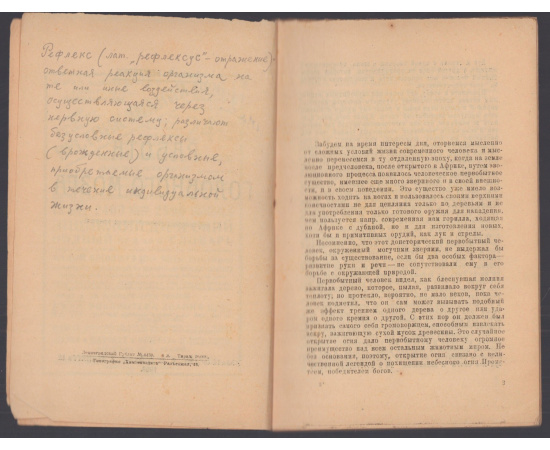 Рефлекс (лат. „рефлексус"- отражение)-
ответная реакция организма на
те или иные воздействия,
осуществляющаяся через
нервную систему; различают
безусловные рефлексы
(врожденные) и условные,
приобретаемые организмом
в течение индивидуальной
жизни.
Забудем на время интересы дня, оторвемся мысленно
от сложных условий жизни современного человека и мыс-
ленно перенесемся в ту отдаленную эпоху, когда на земле
после предчеловека, после открытого в Африке, путем эво-
люционного процесса появилось человеческое первобытное
существо, имевшее еще много звериного и в своей внешно-
сти, и в своем поведении. Это существо уже имело воз-
можность ходить на ногах и пользовалось своими верхними
конечностями не для цепляния только за деревья и не
для употребления только готового оружия для нападения,
чем пользуется напр. современная нам горилла, ходящая
по Африке с дубиной, но и для изготовления новых,
хотя бы и примитивных орудий, как лук и стрелы.
Несомненно, что этот доисторический первобытный че-
ловек, окруженный могучими зверями, не выдержал бы
борьбы за существование, если бы два особых фактора—
развитие руки и речи — не сопутствовали ему в его
борьбе с окружающей природой.
Первобытный человек видел, как блеснувшая молния
зажигала дерево, которое, пылая, развивало вокруг себя
теплоту; но протекло, вероятно, не мало веков, пока че-
ловек подметил, что он сам может вызывать подобный
же эффект трением одного дерева о другое или уда-
ром одного кремня о другой. С этих пор он должен был
признать самого себя громовержцем, способным высекать
искру, зажигающую сухой мусор древесины. Это случайное
открытие огня дало первобытному человеку огромное
преимущество над всем остальным животным миром. Не
без основания, поэтому, открытие огня связано с вели-
чественной легендой о похищении небесного огня Промe-
теем, победителем богов.
3